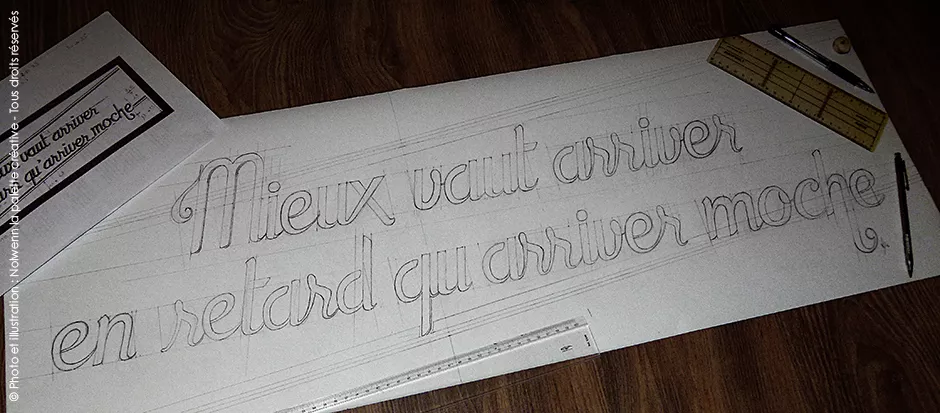 vaut arriver
qu'arriver moche
Mieux vaut arriver
en retard qu arriver moche
© Photo et illustration : Nolwenn la palette créative - Tous droits réservés